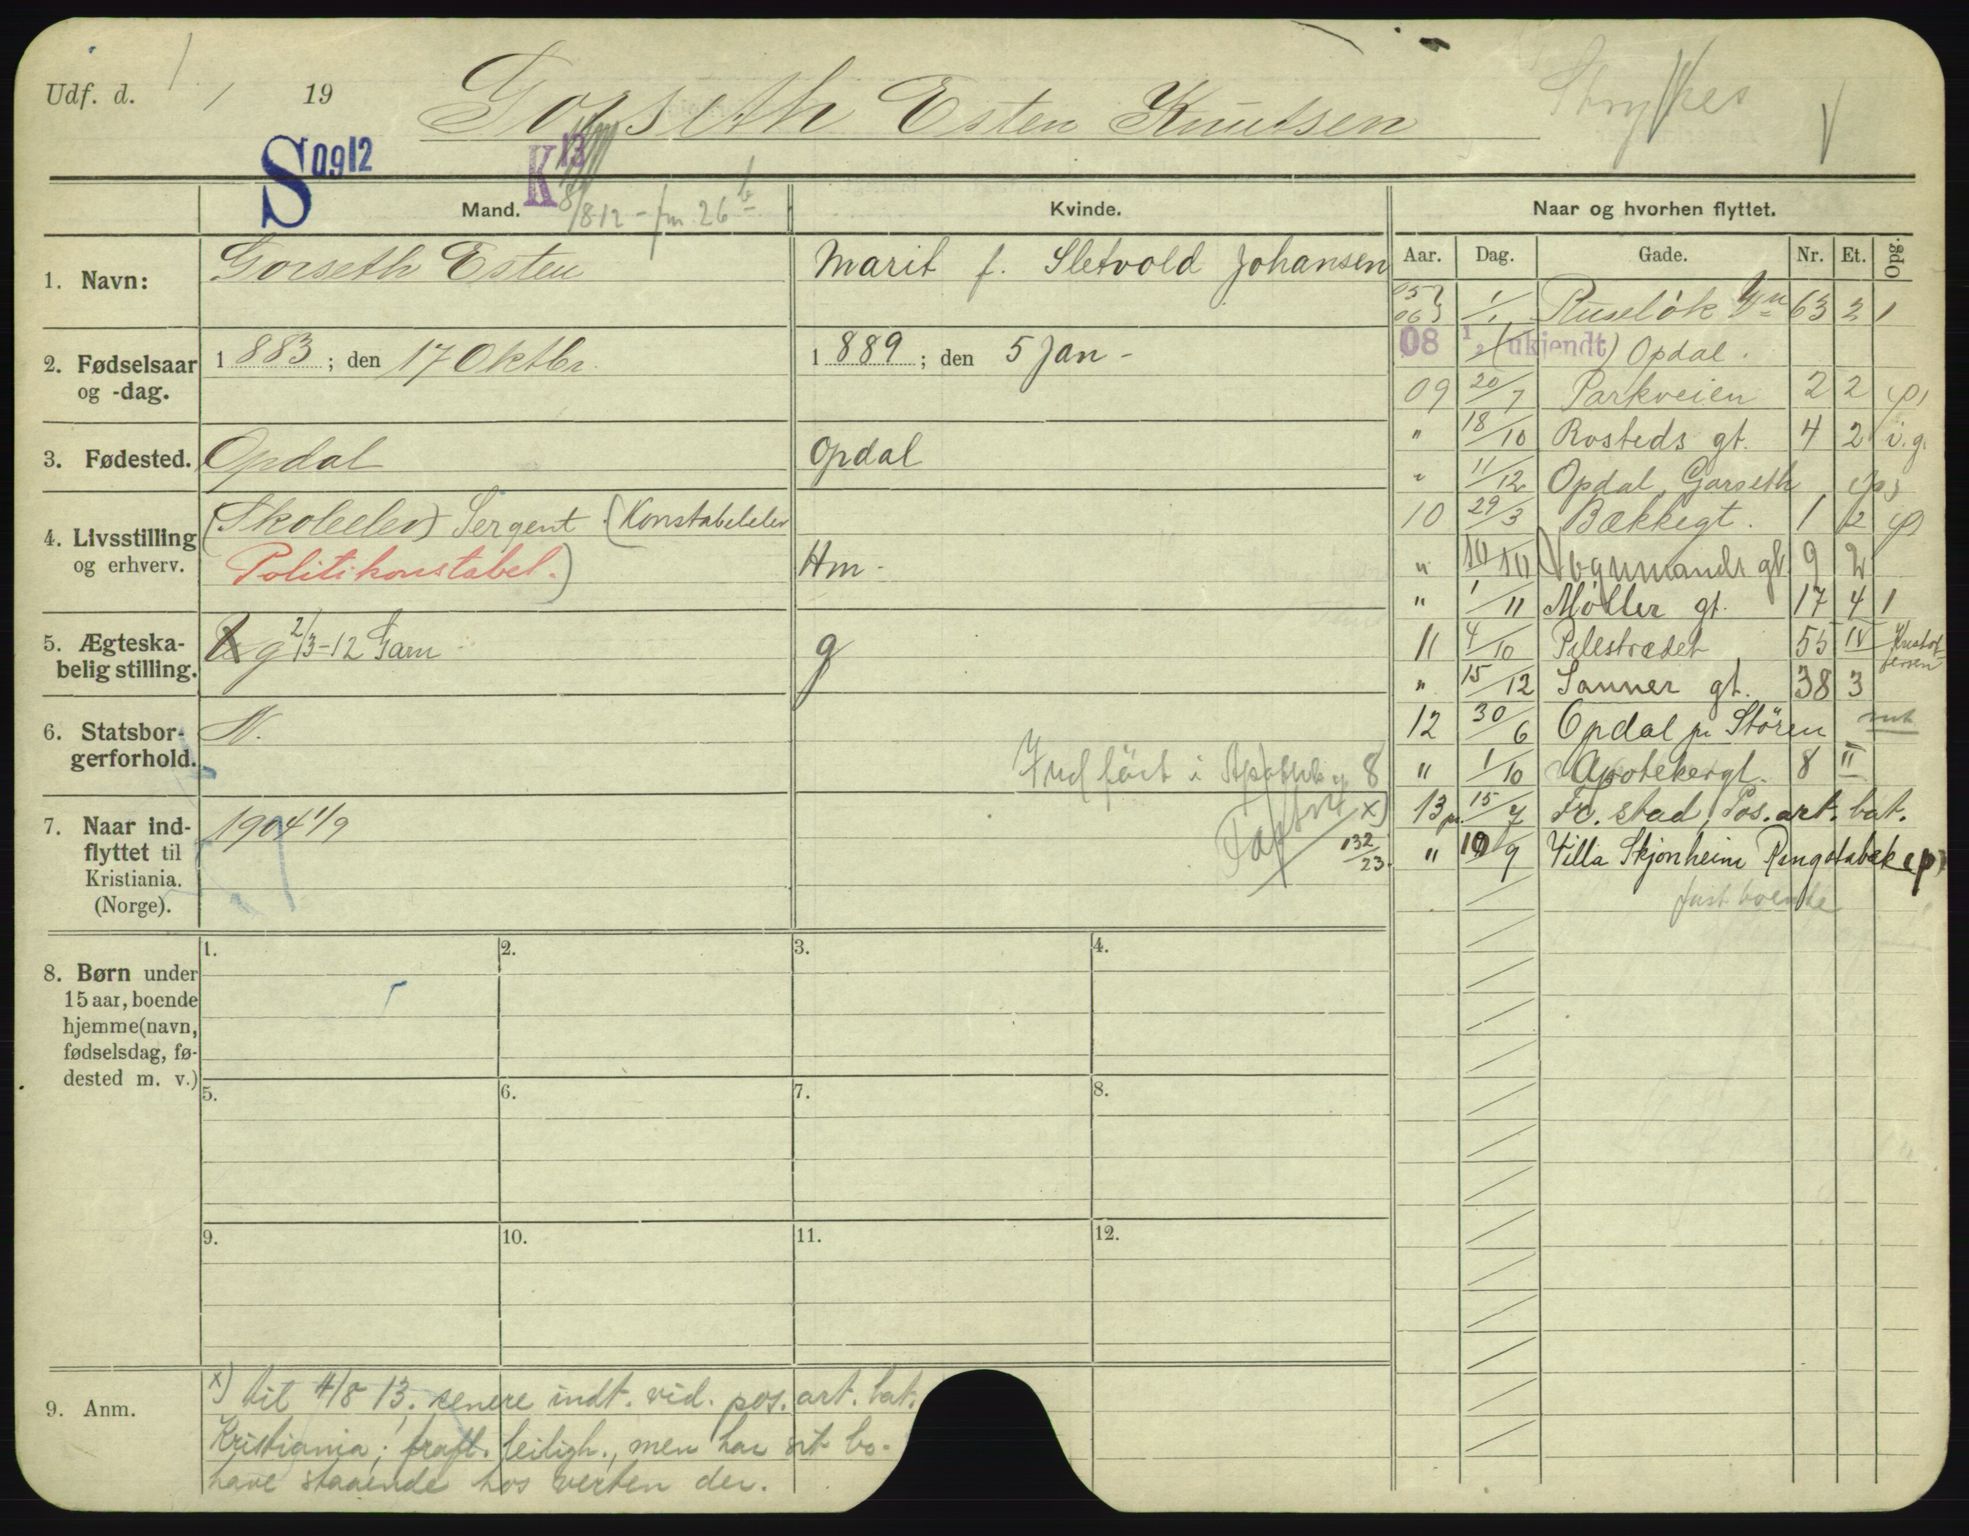 Udf. d. / 19
Gorseth Esten Knutsen
Strykes
S 0912
K 13
8/8 12 - fm 26
Mand.
Kvinde.
Naar og hvorhen flyttet.
Aar. Dag. Gade. Nr. Et. Opg.
1. Navn:
Gorseth Esten
Marit f. Sletvold Johansen
2. Fødselsaar og -dag.
1883; den 17 Oktbr.
1889; den 5 Jan -
3. Fødested.
Opdal
Opdal
4. Livsstilling og erhverv.
(Skoleelev) Sergent (Konstabelelev
Politikonstabel.)
Hm -
5. Ægteska-
belig stilling.
g 2/3-12 Garn
g
6. Statsbor-
gerforhold.
N.
7. Naar ind-
flyttet til
Kristiania.
(Norge).
1904 1/9
Indført i Apothekg 8
x)
132/23
8. Børn under
15 aar, boende
hjemme (navn,
fødselsdag, fø-
dested m. v.)
1. 2. 3. 4.
5. 6. 7. 8.
9. 10. 11. 12.
05 } 06 1/1 Ruseløk Vn 63 2 1
08 1/2 (ukjendt) Opdal.
09 20/7 Parkveien 2 2 (p)
" 18/10 Rosteds gt. 4 2 i.g.
" 11/12 Opdal, Gorseth (p)
10 29/3 Bækkegt. 1 2 (p)
" 10/10 Vognmands gt. 9 2
" 1/11 Møller gt. 17 4 1
11 4/10 Pilestrædet 55 IV Kristoffersen
" 15/12 Sanner gt. 38 3
12 30/6 Opdal pr Stören
" 1/10 Apotekergt. 8 II
13 15/7 Fr. stad, Pos. art. bat.
" 10/9 Villa Skjonheim Ringstabæk (p)
fast boende
9. Anm.
x) til 4/8 13. senere indt. vid. pos. art. bat.
Kristiania; frafl. leiligh., men har sit bo-
have staaende hos verten der.